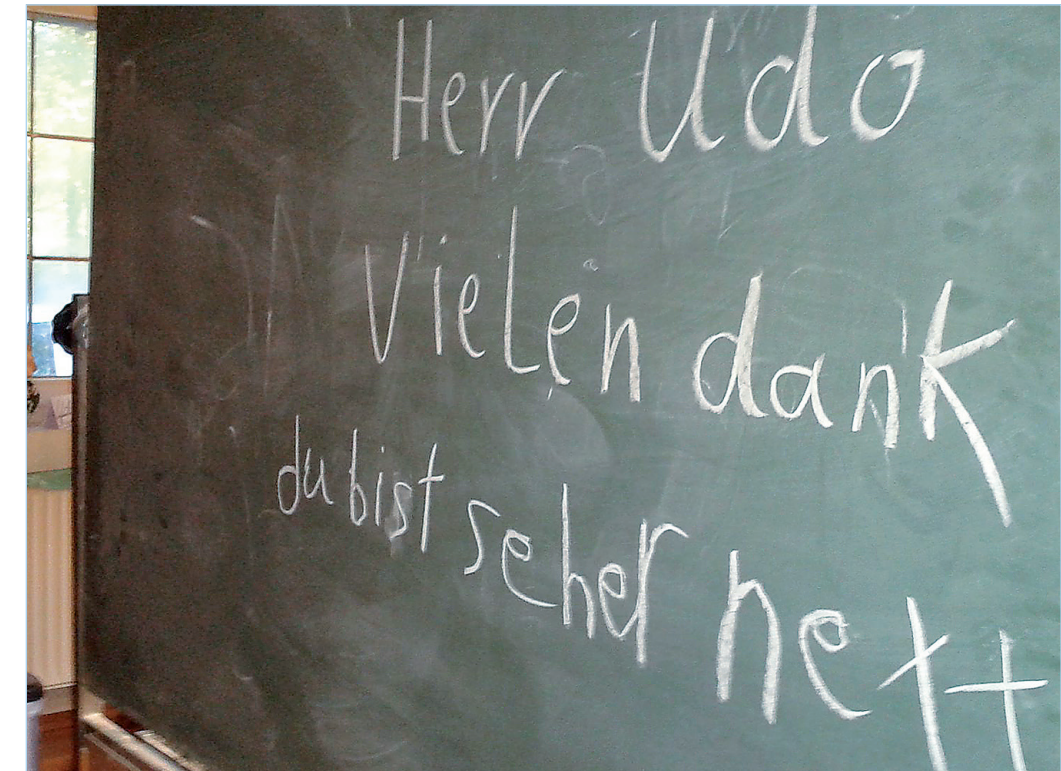 Herr Udo
Vielen dank
du bist seher nett